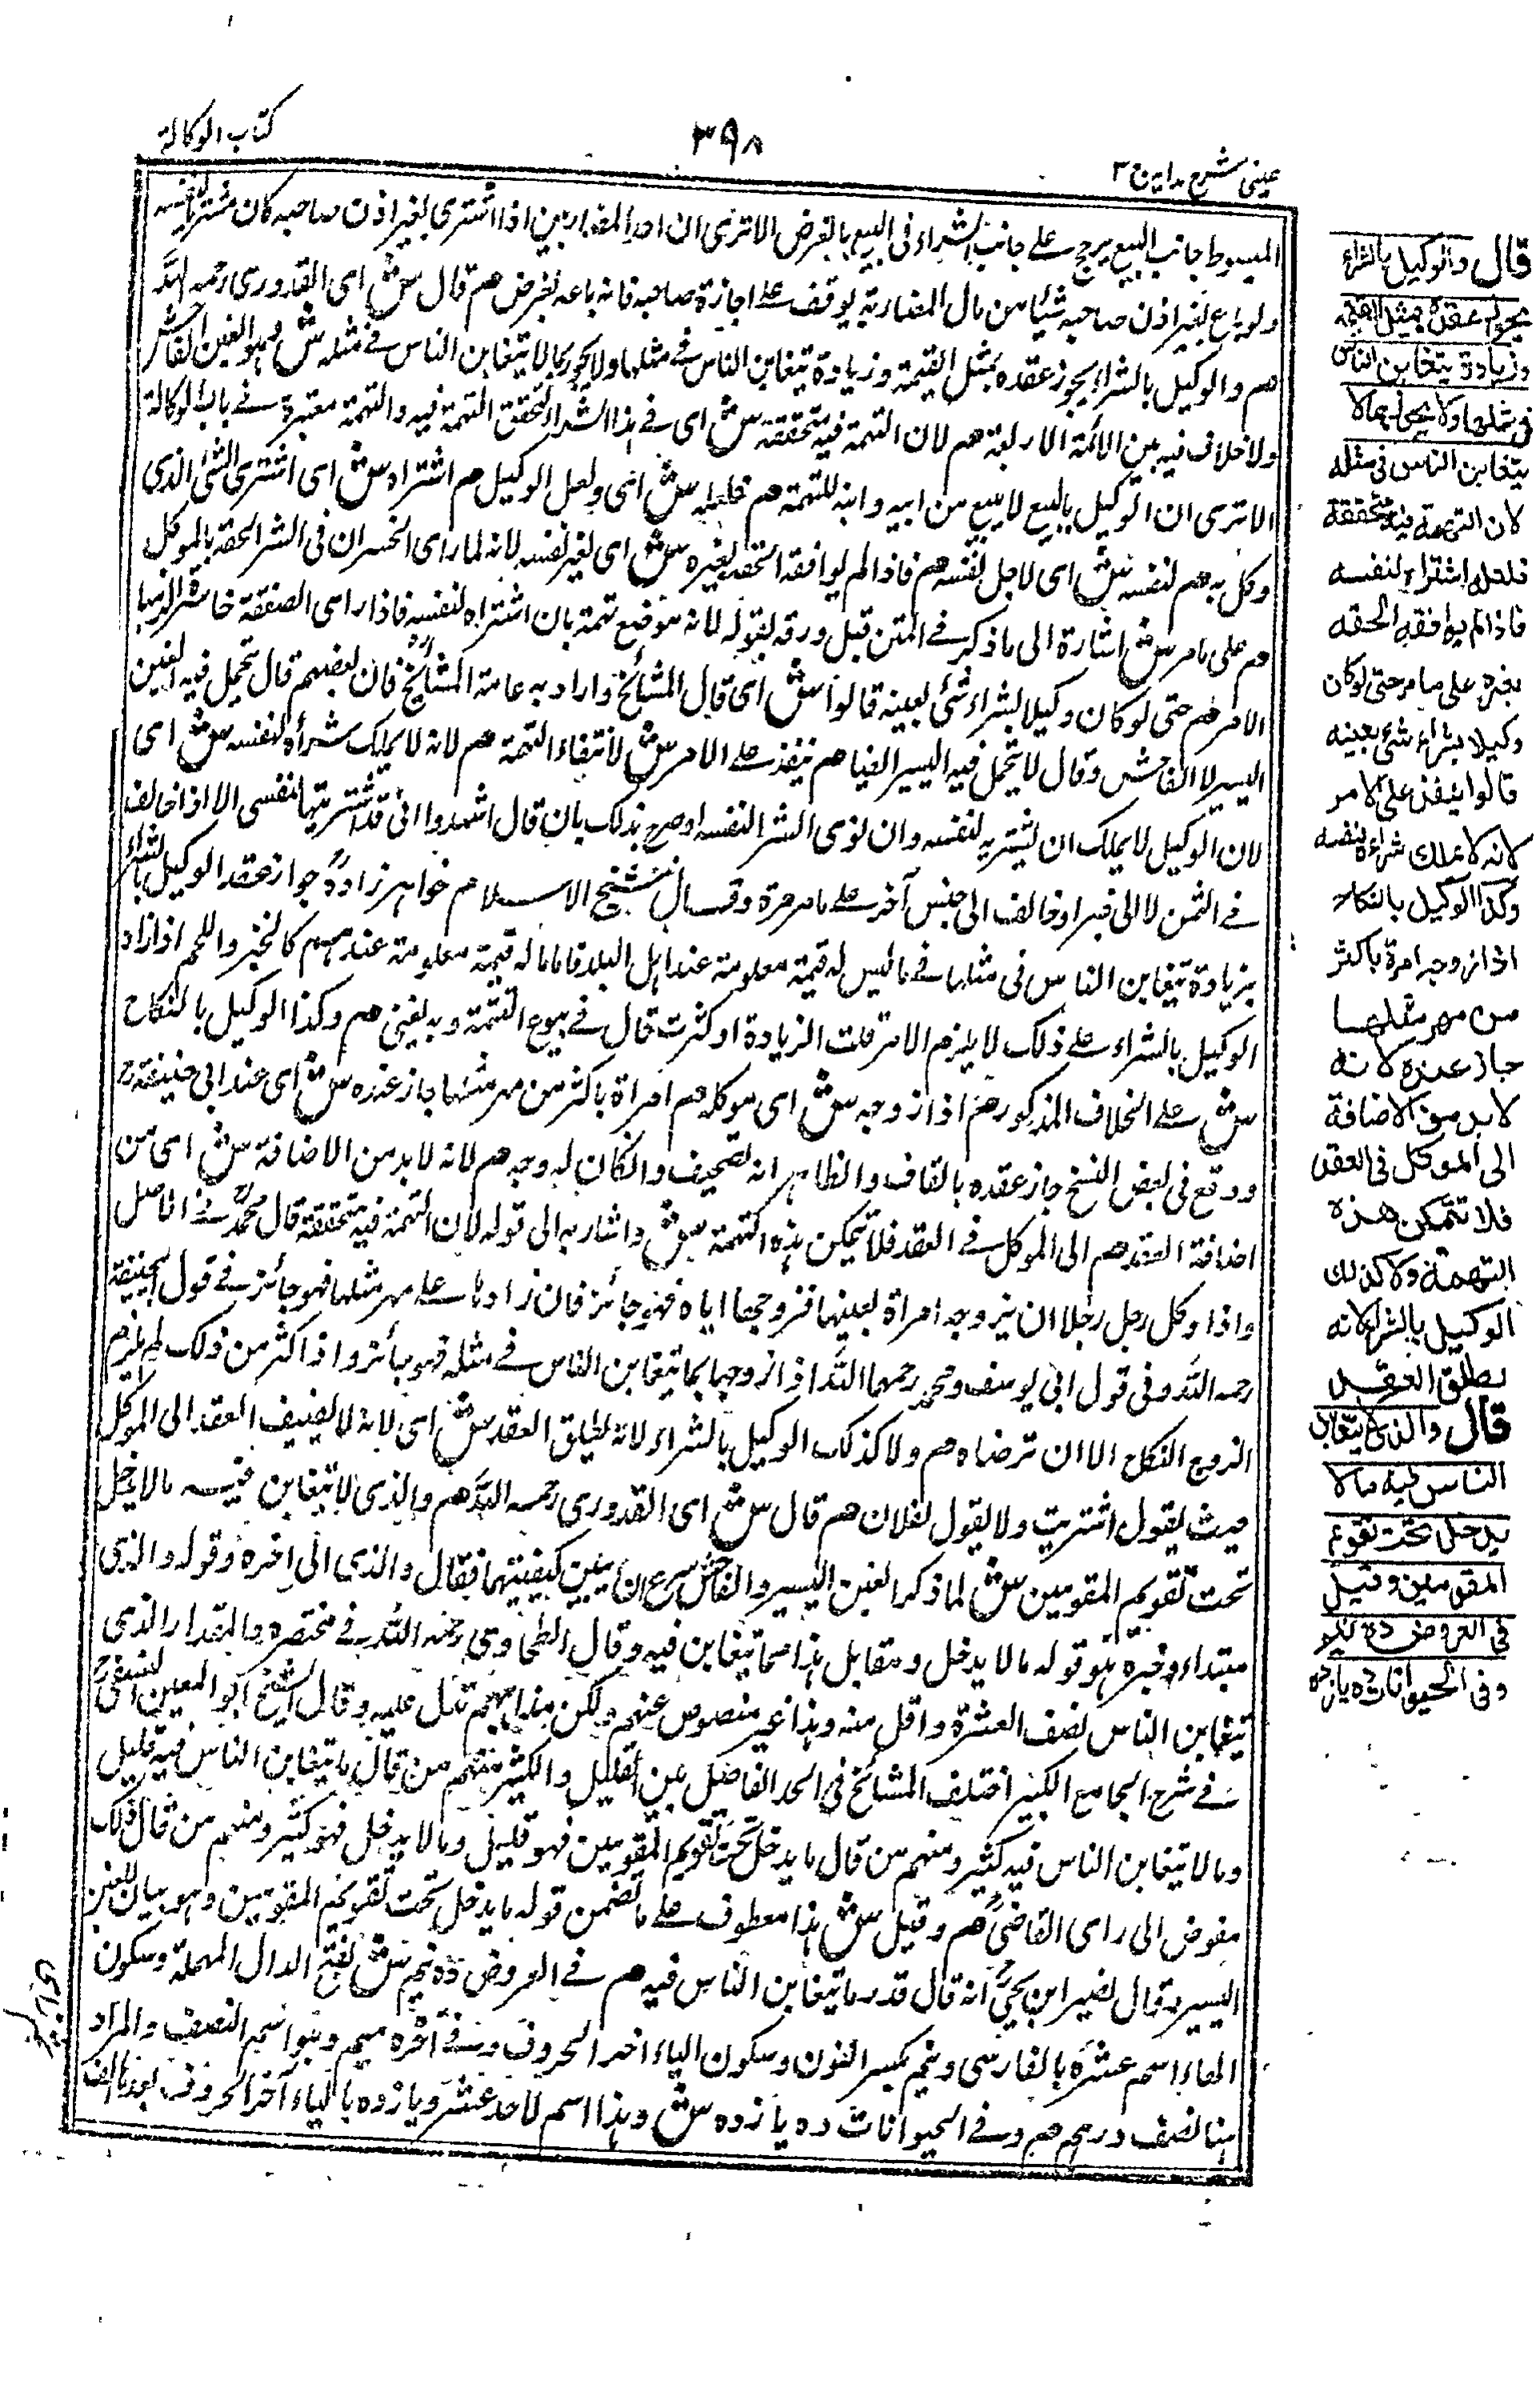 كتاب الوكالة
٣٩٨
عينى شرح هداية ج ٣
المبسوط جانب البيع يرجح على جانب الشراء فى البيع بالعرض الا ترى ان احد المضاربين اذا اشترى بغير اذن صاحبه كان مشتريا لنفسه
ولو باع بغير اذن صاحبه شيئا من مال المضاربة يوقف على اجازة صاحبه فانه باعه بعرض هم قال ش اى القدورى رحمه الله
هم والوكيل بالشراء يجوز عقده بمثل القيمة وزيادة يتغابن الناس فى مثلها ولا يجوز بما لا يتغابن الناس فى مثله ش وهو الغبن الفاحش
ولا خلاف فيه بين الائمة الاربعة هم لان التهمة فيه متحققة ش اى فى هذا الشراء لتحقق التهمة فيه والتهمة معتبرة فى باب الوكالة
الا ترى ان الوكيل بالبيع لا يبيع من ابيه وابنه للتهمة هم فلعله ش اى ولعل الوكيل هم اشتراه ش اى اشترى الشئ الذى
وكل به هم لنفسه ش اى لاجل نفسه هم فاذا لم يوافقه الحقه بغيره ش اى لغير نفسه لانه لما راى الخسران فى الشراء الحقه بالموكل
هم على ما مر ش اشارة الى ما ذكر فى المتن قبل ورقة بقوله لانه موضع تهمة بان اشتراه لنفسه فاذا راى الصفقة خاسرة الزمها
الامر هم حتى لو كان وكيلا بشراء شئ بعينه قالوا ش اى قال المشائخ واراد به عامة المشائخ فان بعضهم قال يتحمل فيه الغبن
اليسير لا الفاحش وقال لا يتحمل فيه اليسير ايضا هم ينفذ على الامر ش لانتفاء التهمة هم لانه لا يملك شراءه لنفسه ش اى
لان الوكيل لا يملك ان يشتريه لنفسه وان نوى الشراء لنفسه او صرح بذلك بان قال اشهدوا انى قد اشتريتها لنفسى الا اذا خالف
فى الثمن لا الى خير او خالف الى جنس آخر على ما مر مرة وقال شيخ الاسلام خواهر زاده جواز عقد الوكيل بالشراء
بزيادة يتغابن الناس فى مثلها فى ما ليس له قيمة معلومة عند اهل البلد فاما ما له قيمة معلومة عندهم كالخبز واللحم اذا زاد
الوكيل بالشراء على ذلك لا يلزم الامر قلت الزيادة او كثرت قال فى بيوع التتمة وبه يفتى هم وكذا الوكيل بالنكاح
ش على الخلاف المذكور هم اذا زوجه ش اى موكله هم امراة باكثر من مهر مثلها جاز عنده ش اى عند ابى حنيفة رح
ووقع فى بعض النسخ جاز عقده بالقاف والظاهر انه تصحيف وان كان له وجه هم لانه لا بد من الاضافة ش اى من
اضافة العقد هم الى الموكل فى العقد فلا تتمكن هذه التهمة ش واشار به الى قوله لان التهمة فيه متحققة قال محمد فى الاصل
واذا وكل رجل رجلا ان يزوجه امراة بعينها فزوجها اياه فهو جائز فان زادها على مهر مثلها فهو جائز فى قول ابى حنيفة
رحمه الله وفى قول ابى يوسف ومحمد رحمهما الله اذا زوجها بما يتغابن الناس فى مثله فهو جائز واذا اكثر من ذلك لم يلزم
الزوج النكاح الا ان ترضاه هم ولا كذلك الوكيل بالشراء لانه يطلق العقد ش اى لانه لا يضيف العقد الى الموكل
حيث يقول اشتريت ولا يقول لفلان هم قال ش اى القدورى رحمه الله هم والذى لا يتغابن فيه ما لا يدخل
تحت تقويم المقومين ش لما ذكر الغبن اليسير والفاحش شرع ان يبين كيفيتهما فقال والذى الى اخره وقوله والذى
مبتداء وخبره هو قوله ما لا يدخل ومقابل هذا مما يتغابن فيه وقال الطحاوى رحمه الله فى مختصره والمقدار الذى
يتغابن الناس نصف العشرة واقل منه وهذا غير منصوص عنهم ولكن مذاهبهم تدل عليه وقال الشيخ ابو المعين النسفى
فى شرح الجامع الكبير اختلف المشائخ فى الحد الفاصل بين القليل والكثير منهم من قال ما يتغابن الناس فيه قليل
وما لا يتغابن الناس فيه كثير ومنهم من قال ما يدخل تحت تقويم المقومين فهو قليل وما لا يدخل فهو كثير ومنهم من قال ذلك
مفوض الى راى القاضى هم وقيل ش هذا معطوف على ما تضمن قوله ما يدخل تحت تقويم المقومين وهو بيان للغبن
اليسير وقال نصير ابن يحيى انه قال قدر ما يتغابن الناس فيه هم فى العروض ده نيم ش بفتح الدال المهملة وسكون
الهاء اسم عشرة بالفارسى ونيم بكسر النون وسكون الياء اخر الحروف وفى آخره ميم وهو اسم النصف والمراد
هنا نصف درهم هم وفى الحيوانات ده يازده ش وهذا اسم لاحد عشر ويازده بالياء آخر الحروف بعدها الف
قال والوكيل بالشراء
يجوز عقده بمثل القيمة
وزيادة يتغابن الناس
فى مثلها ولا يجوز بما لا
يتغابن الناس فى مثله
لان التهمة فيه متحققة
فلعله اشتراه لنفسه
فاذا لم يوافقه الحقه
بغيره على ما مر حتى لو كان
وكيلا بشراء شئ بعينه
قالوا ينفذ على الامر
لانه لا يملك شراءه لنفسه
وكذا الوكيل بالنكاح
اذا زوجه امرة باكثر
من مهر مثلها
جاز عنده لانه
لا بد من الاضافة
الى الموكل فى العقد
فلا تتمكن هذه
التهمة ولا كذلك
الوكيل بالشراء لانه
يطلق العقد
قال والذى لا يتغابن
الناس فيه ما لا
يدخل تحت تقويم
المقومين وقيل
فى العروض ده نيم
وفى الحيوانات ده يازده